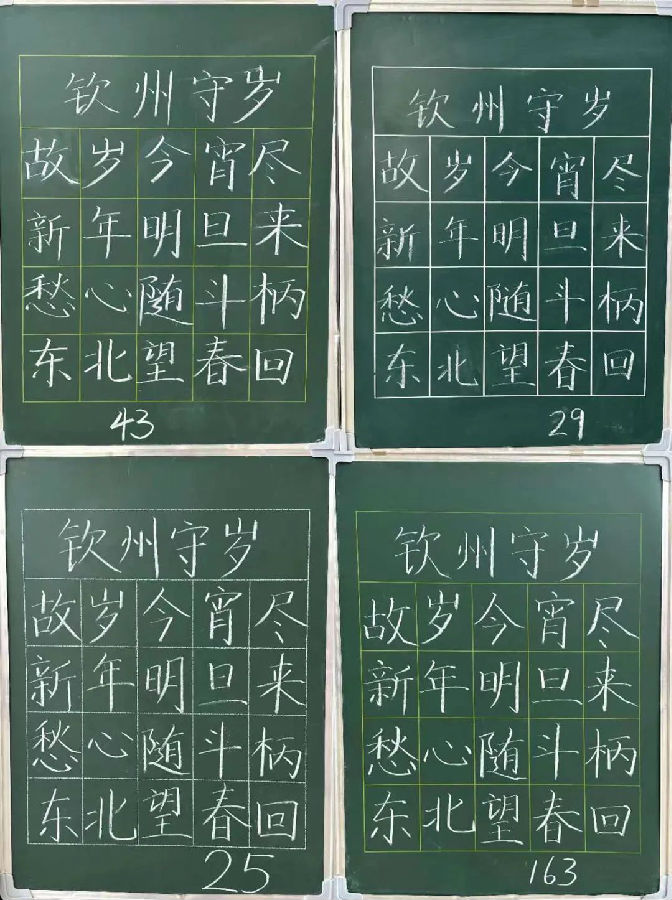 钦州守岁
故岁今宵尽
新年明旦来
愁心随斗柄
东北望春回
43
钦州守岁
故岁今宵尽
新年明旦来
愁心随斗柄
东北望春回
29
钦州守岁
故岁今宵尽
新年明旦来
愁心随斗柄
东北望春回
25
钦州守岁
故岁今宵尽
新年明旦来
愁心随斗柄
东北望春回
163